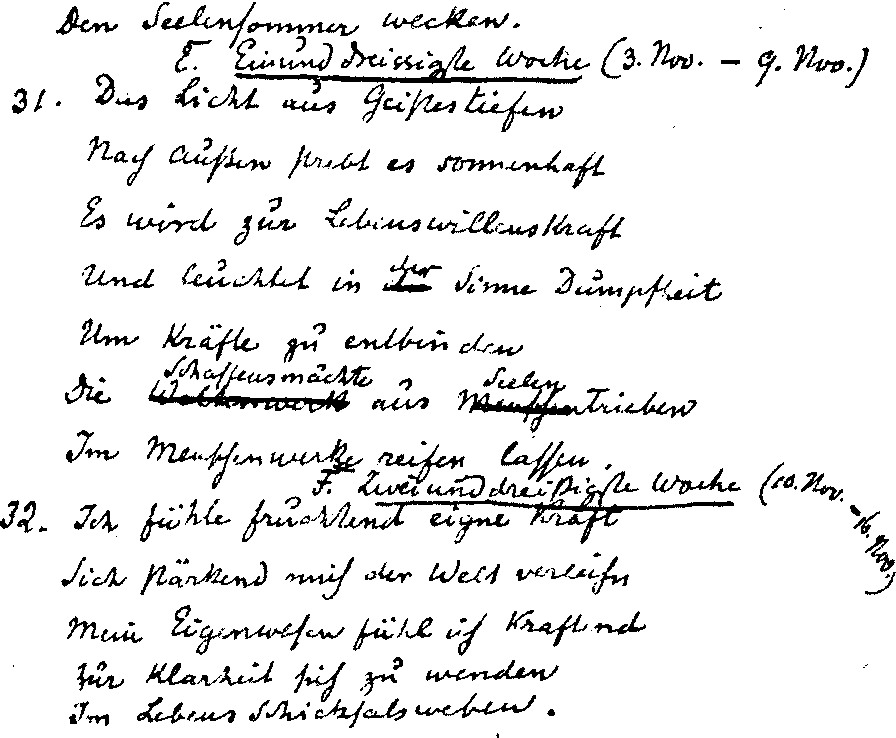 Den Seelensommer wecken.
E. Einunddreissigste Woche (3. Nov. – 9. Nov.)
31. Das Licht aus Geistestiefen
Nach außen strebt es sonnenhaft
Es wird zur Lebenswillenskraft
der
Und leuchtet in Sinne Dumpfheit
Um Kräfte zu entbinden
Schaffensmächte Seelen
Die aus Menschentrieben
Im Menschenwerke reifen lassen.
F. Zweiunddreißigste Woche (10. Nov. – 16. Nov.)
32. Ich fühle fruchtend eigne Kraft
Sich stärkend mich der Welt verleihn
Mein Eigenwesen fühl ich kraftend
Zur Klarheit sich zu wenden
Im Lebensschicksalsweben.